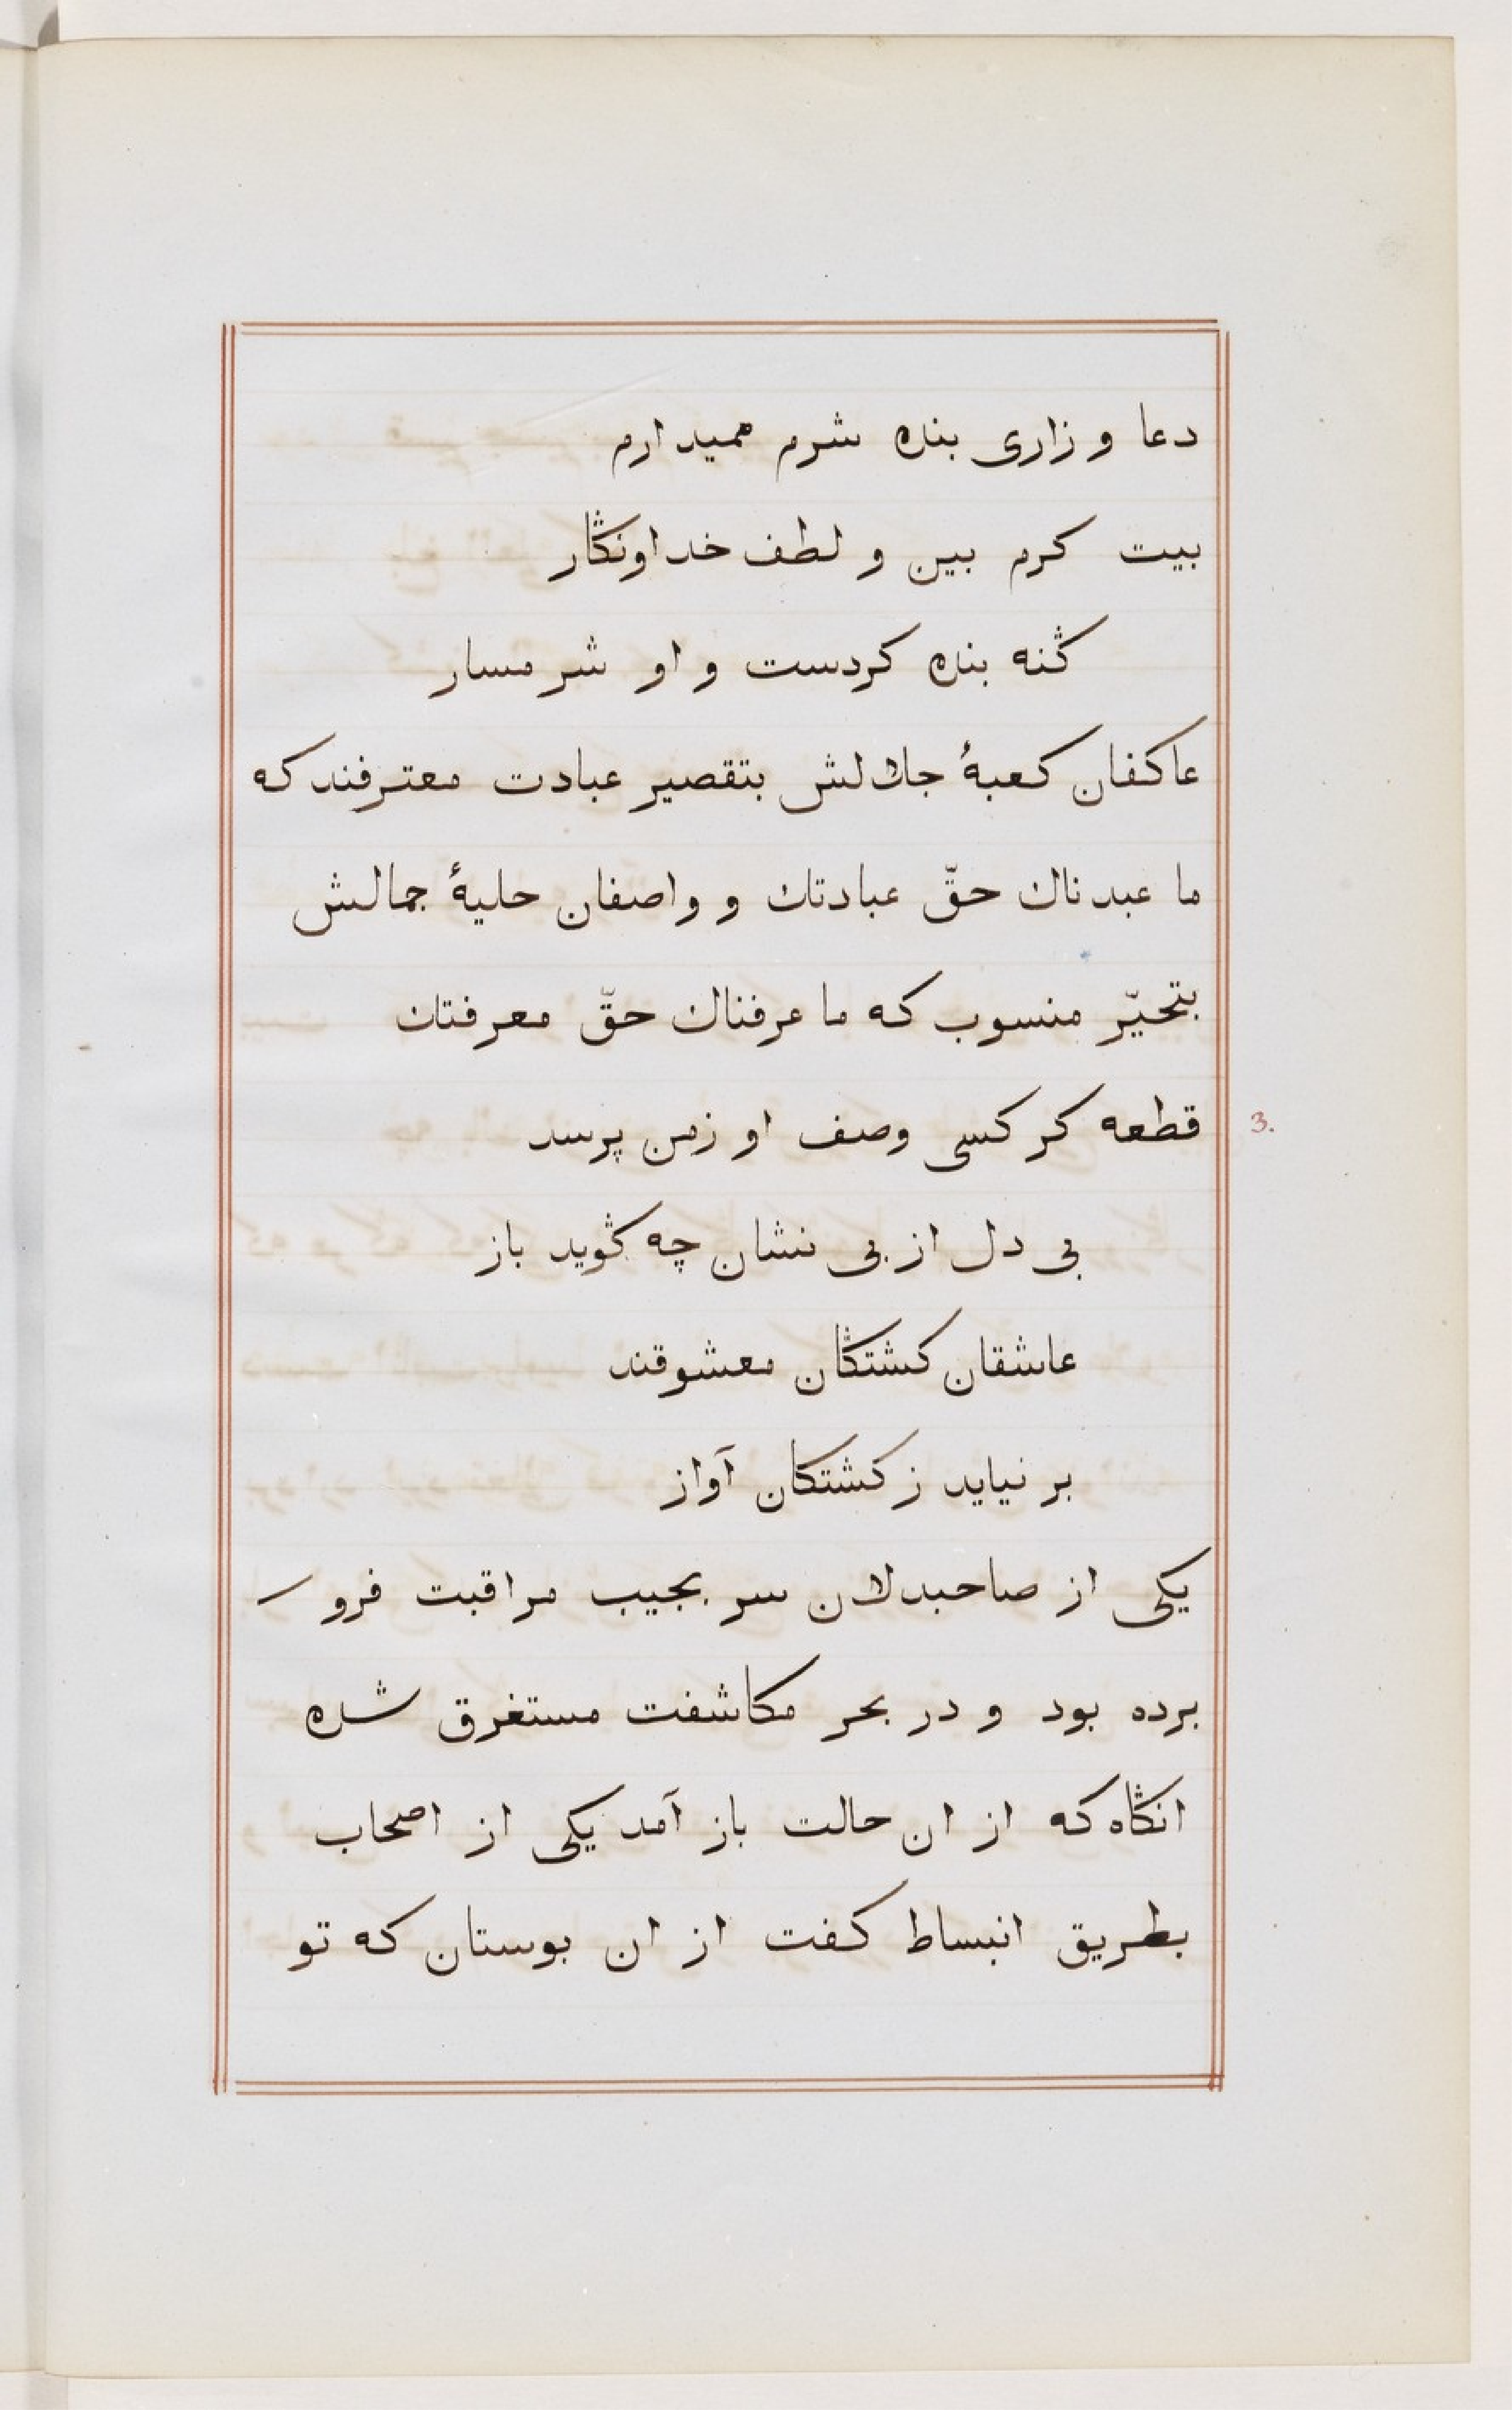 دعا و زاری بنده شرم همیدارم
بیت کرم بین و لطف خداونڭار
ڭنه بنده کردست و او شرمسار
عاکفان کعبهٔ جلالش بتقصیر عبادت معترفند که
ما عبدناك حقّ عبادتك و واصفان حلیهٔ جمالش
بتحیّر منسوب که ما عرفناك حقّ معرفتك
قطعه کر کسی وصف او زمن پرسد
3.
بی دل از بی نشان چه ڭوید باز
عاشقان کشتڭان معشوقند
بر نیاید ز کشتکان آواز
یکی از صاحبدلان سر بجیب مراقبت فرو
برده بود و در بحر مکاشفت مستغرق شده
انڭاه که از ان حالت باز آمد یکی از اصحاب
بطریق انبساط کفت از ان بوستان که تو